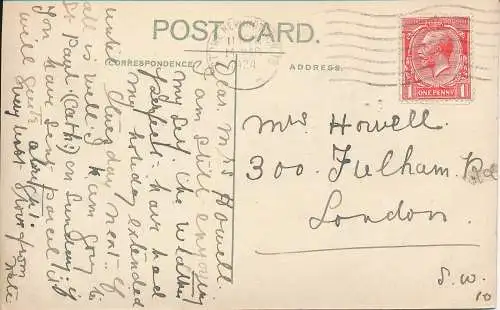 POST CARD.
CORRESPONDENCE
ADDRESS.
1924
ONE PENNY
1
1
Dear Mrs Howell.
I am still enjoying
my self the weather
perfect. have had
my holiday extended
until Tuesday next. if
all is well I am going to
St Paul (Cath) on Sunday if
You have sent parcel it
will quite alright
very best love from
Mrs Howell.
300. Fulham Rd
London.
S.W.
10